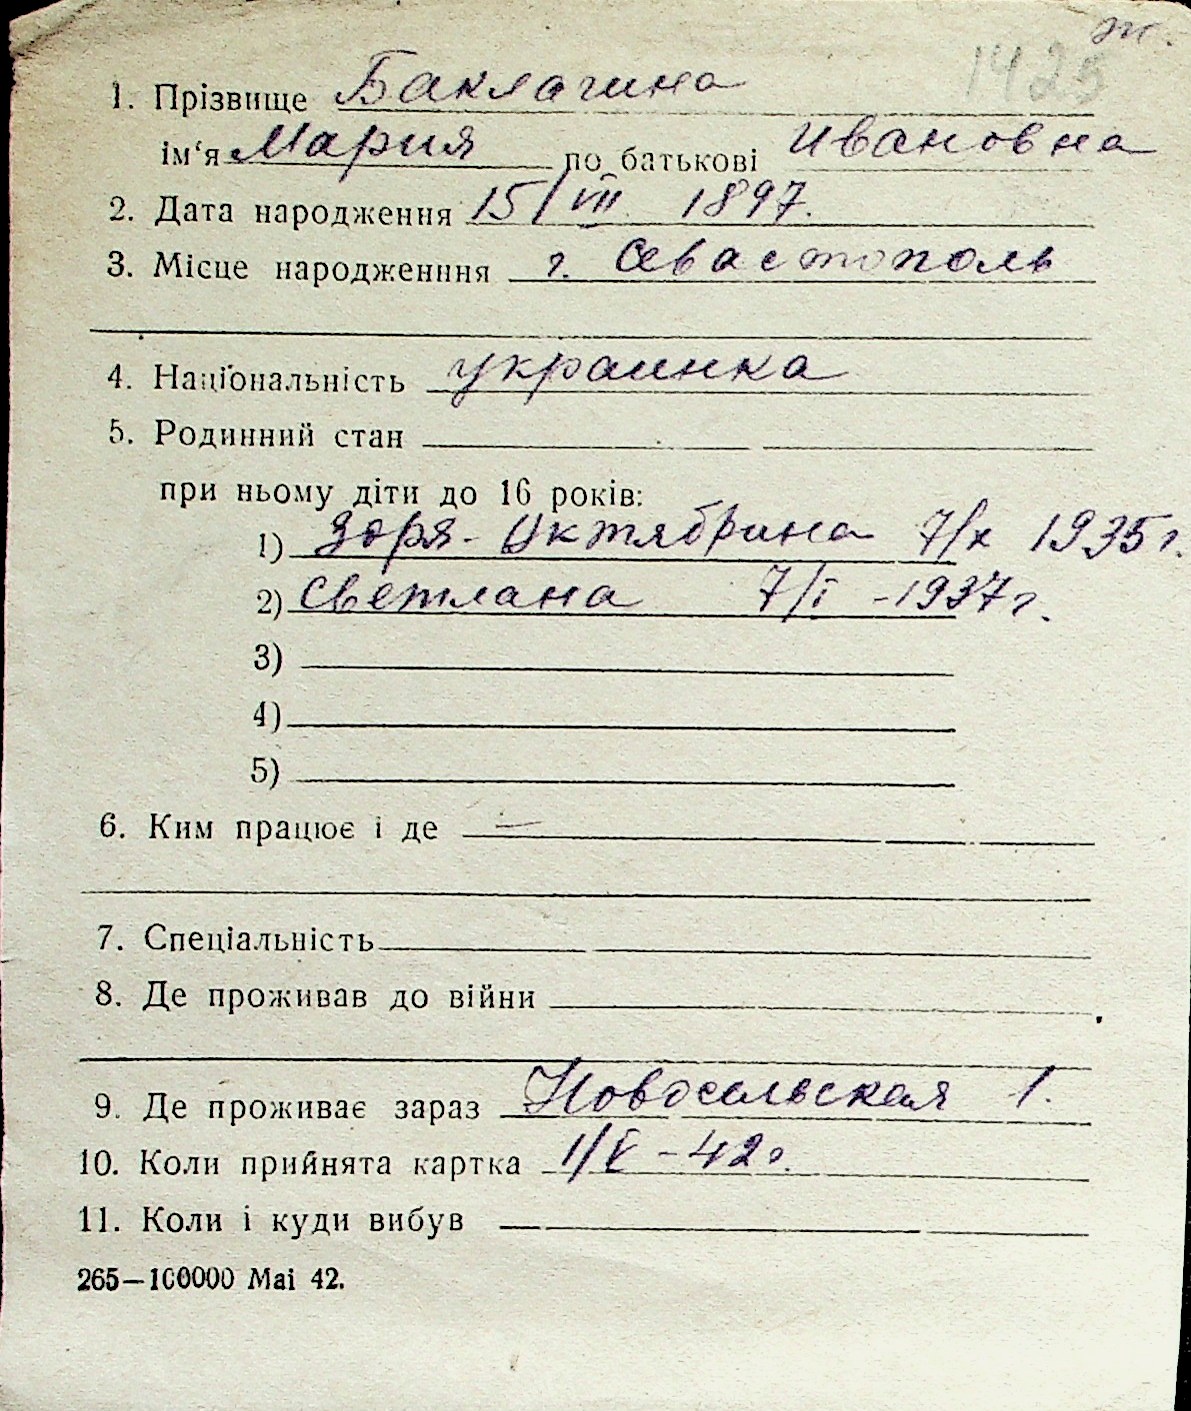 ж.
1425
1. Прізвище Баклагина
ім‘я Мария по батькові Ивановна
2. Дата народження 15/VII 1897.
3. Місце народженння г. Севастополь
4. Національність украинка
5. Родинний стан
при ньому діти до 16 років:
1) Зоря-Октябрина 7/X 1935 г.
2) Светлана 7/I - 1937 г.
3)
4)
5)
6. Ким працює і де —
7. Спеціальність
8. Де проживав до війни
9. Де проживає зараз Новосельская 1.
10. Коли прийнята картка 1/V - 42 г.
11. Коли і куди вибув
265—100000 Mai 42.